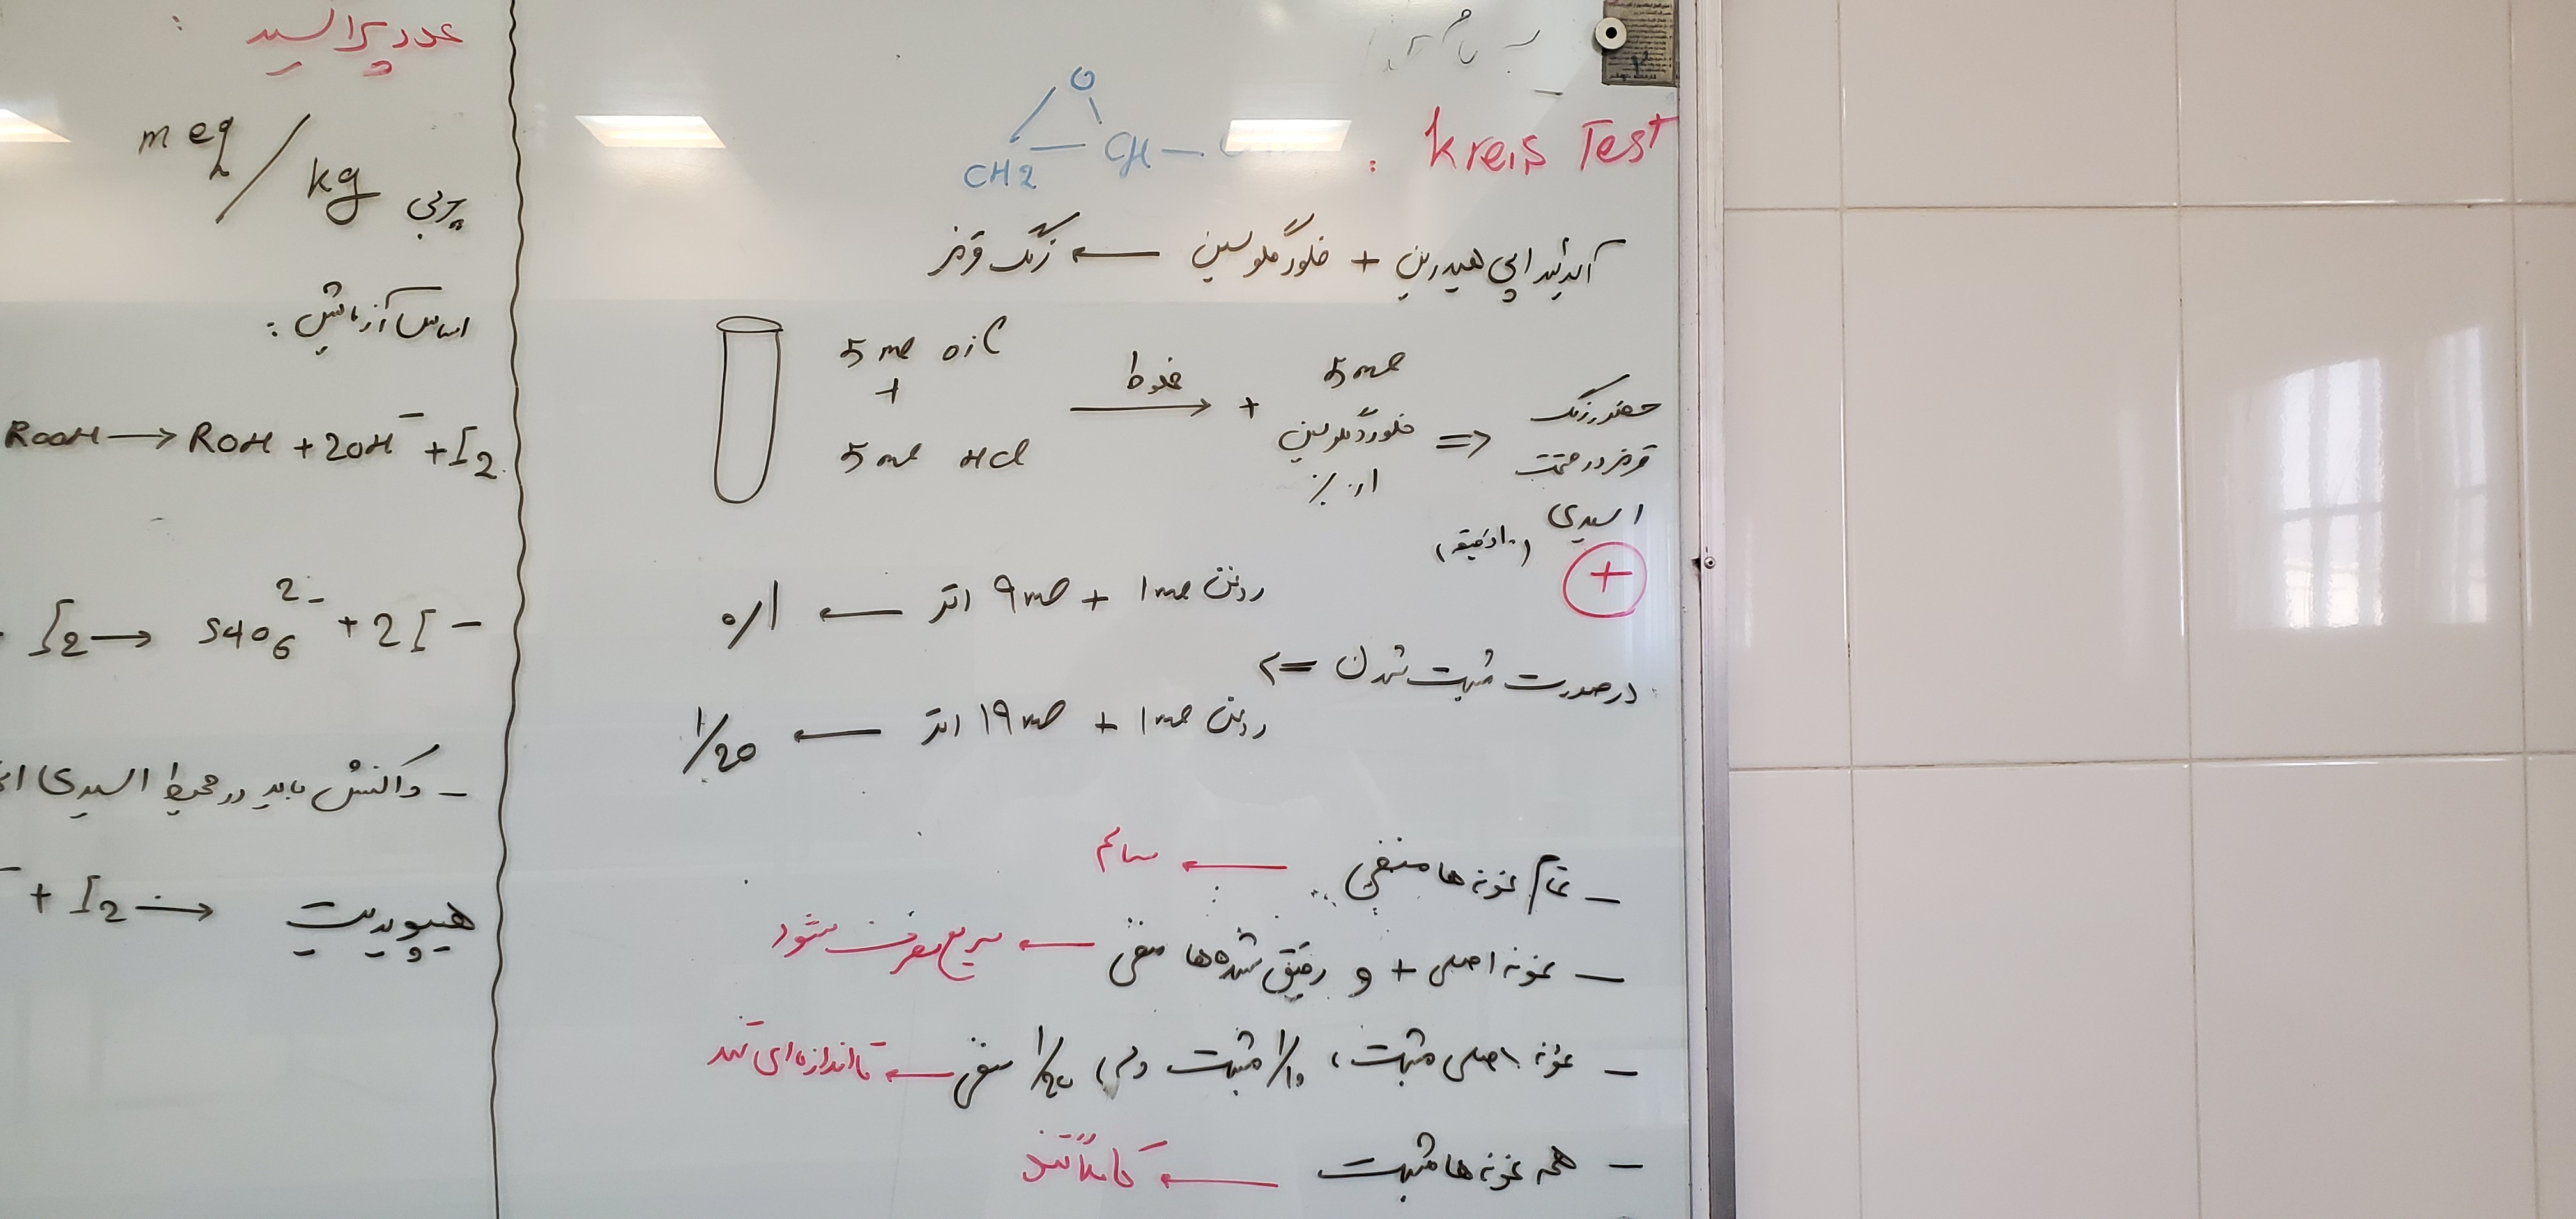 Kreis Test :
O
CH2 — CH —
آلدئید اپی هیدرین + فلورگلوسین ← رنگ قرمز
5 ml oil + 5 ml HCl → مخلوط + 5 ml فلوروگلوسین ۰/۱ % ⇒ حضور رنگ قرمز در قسمت اسیدی (۱۰ دقیقه)
+
در صورت مثبت شدن ⇒
روغن 1 ml + 9 ml اتر ← ۰/۱
روغن 1 ml + 19 ml اتر ← 1/20
– تمام نمونه ها منفی ← سالم
– نمونه اصلی + و رقیق شده ها منفی ← سریع مصرف شود
– نمونه اصلی مثبت، 1/10 مثبت ولی 1/20 منفی ← تا اندازه ای تند
– همه نمونه ها مثبت ← کاملاً تند
عدد پراکسید :
meq / kg چربی
اساس آزمایش :
ROOH → ROH + 2OH⁻ + I2
I2 → S4O6 2- + 2I -
– واکنش باید در محیط اسیدی
+ I2 → هیپویدیت